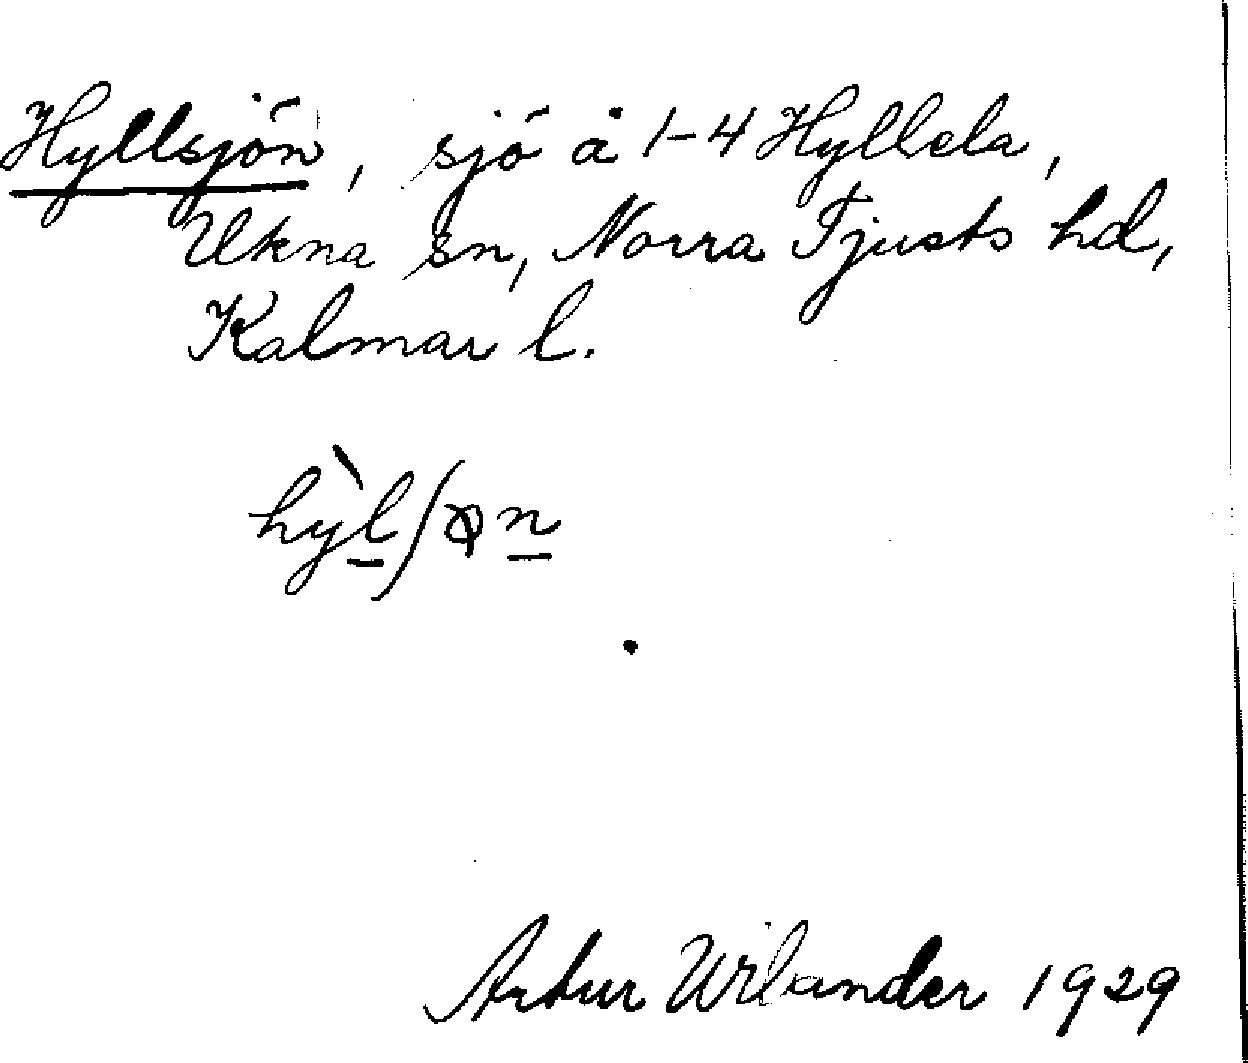 Hyllsjön, sjö å 1-4 Hyllela,
Ukna sn, Norra Tjusts hd,
Kalmar l.
hỳ̖l̲ʃꞷn̲
Artur Wilander 1929